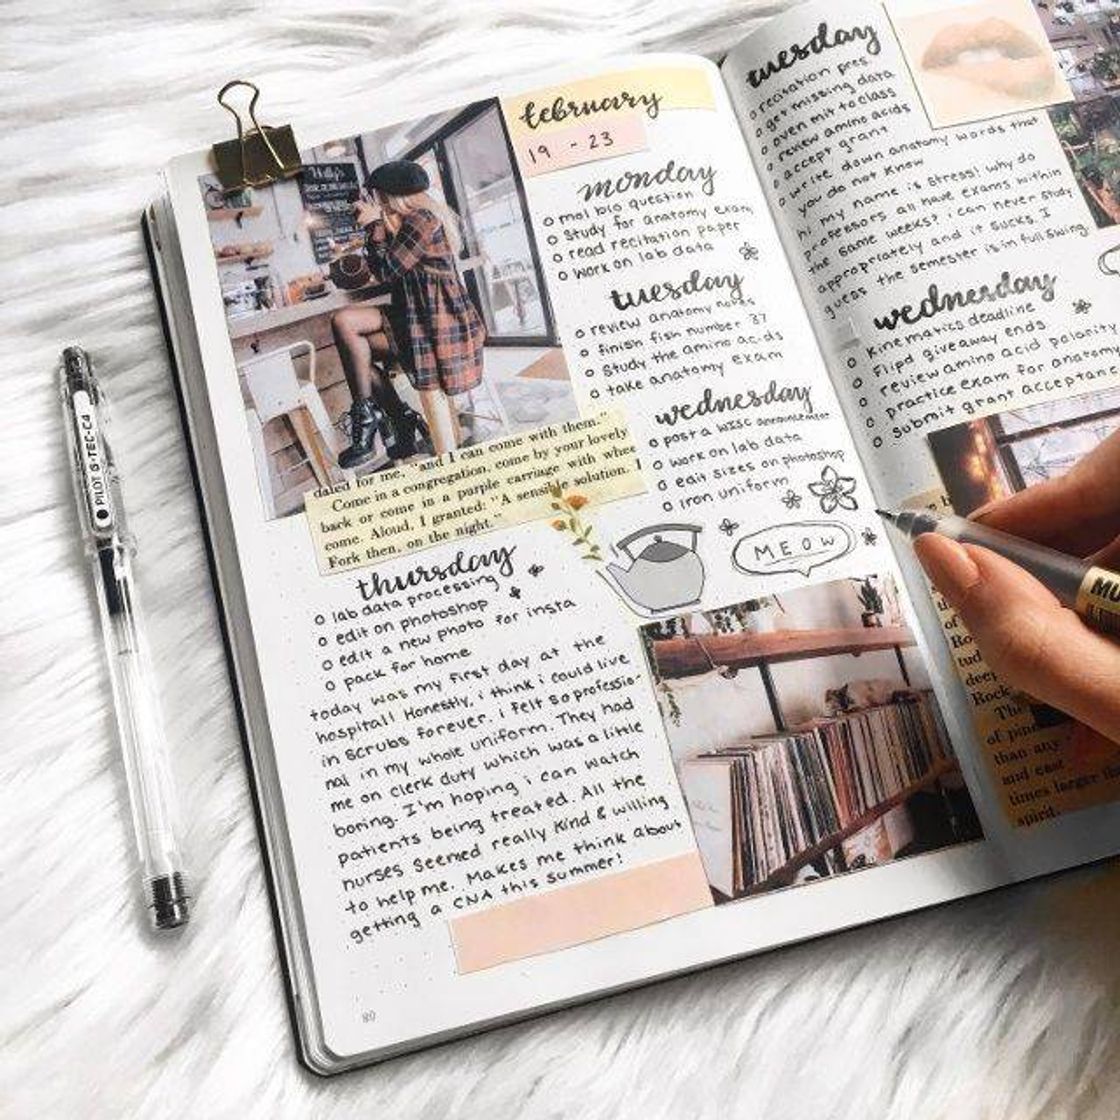 february
19 - 23
monday
o mol bio question
o study for anatomy exam
o read recitation paper
o work on lab data
tuesday
o review anatomy notes
o finish fish number 37
o study the amino acids
o take anatomy exam
wednesday
o post a WISC announcement
o work on lab data
o edit sizes on photoshop
o iron uniform
MEOW
dated for me, "and I can come with them."
Come in a congregation, come by your lovely
back or come in a purple carriage with
come. Aloud, I granted: "A sensible solution. I
Fork then, on the night."
thursday
o lab data processing
o edit on photoshop
o edit a new photo for insta
o pack for home
today was my first day at the
hospital! Honestly, i think i could live
in scrubs forever. i felt so professio-
nal in my whole uniform. They had
me on clerk duty which was a little
boring. I'm hoping i can watch
patients being treated. All the
nurses seemed really kind & willing
to help me. Makes me think about
getting a CNA this summer!
80
tuesday
o recitation pres
o get missing data
o oven mit to class
o review amino acids
o accept grant
o write down anatomy words that
you do not know
hi my name is stress! why do
professors all have exams within
the same weeks? i can never study
appropriately and it sucks. I
guess the semester is in full swing.
wednesday
o kinematics deadline
o Flipd giveaway ends
o review amino acid
o practice exam for
o submit grant
of
tud
Rock
The
of
than any
and east
times larger
spirit.
PILOT G-TEC-C4